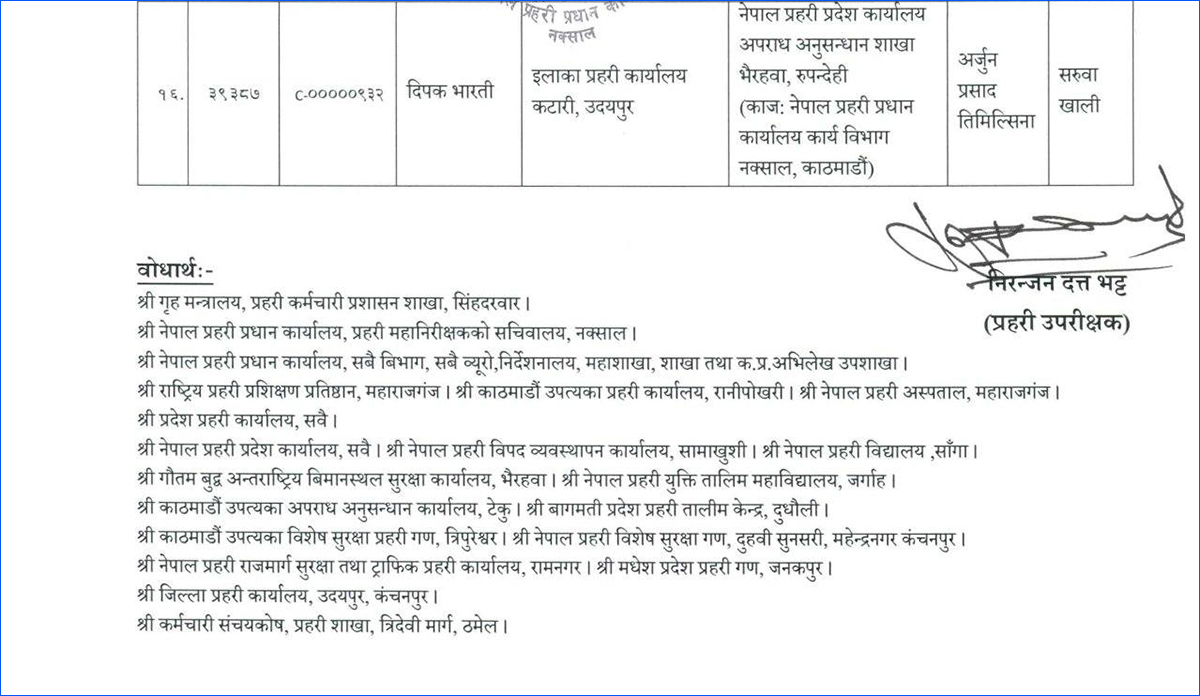 प्रहरी प्रधान
नक्साल
१६.
३९३८७
C-०००००९३२
दिपक भारती
इलाका प्रहरी कार्यालय
कटारी, उदयपुर
नेपाल प्रहरी प्रदेश कार्यालय
अपराध अनुसन्धान शाखा
भैरहवा, रुपन्देही
(काज: नेपाल प्रहरी प्रधान
कार्यालय कार्य विभाग
नक्साल, काठमाडौं)
अर्जुन
प्रसाद
तिमिल्सिना
सरुवा
खाली
निरन्जन दत्त भट्ट
(प्रहरी उपरीक्षक)
वोधार्थ:-
श्री गृह मन्त्रालय, प्रहरी कर्मचारी प्रशासन शाखा, सिंहदरवार ।
श्री नेपाल प्रहरी प्रधान कार्यालय, प्रहरी महानिरीक्षकको सचिवालय, नक्साल ।
श्री नेपाल प्रहरी प्रधान कार्यालय, सबै बिभाग, सबै व्यूरो,निर्देशनालय, महाशाखा, शाखा तथा क.प्र.अभिलेख उपशाखा ।
श्री राष्ट्रिय प्रहरी प्रशिक्षण प्रतिष्ठान, महाराजगंज । श्री काठमाडौं उपत्यका प्रहरी कार्यालय, रानीपोखरी । श्री नेपाल प्रहरी अस्पताल, महाराजगंज ।
श्री प्रदेश प्रहरी कार्यालय, सवै ।
श्री नेपाल प्रहरी प्रदेश कार्यालय, सवै । श्री नेपाल प्रहरी विपद व्यवस्थापन कार्यालय, सामाखुशी । श्री नेपाल प्रहरी विद्यालय ,साँगा ।
श्री गौतम बुद्व अन्तराष्ट्रिय बिमानस्थल सुरक्षा कार्यालय, भैरहवा । श्री नेपाल प्रहरी युक्ति तालिम महाविद्यालय, जर्गाह ।
श्री काठमाडौं उपत्यका अपराध अनुसन्धान कार्यालय, टेकु । श्री बागमती प्रदेश प्रहरी तालीम केन्द्र, दुधौली ।
श्री काठमाडौं उपत्यका विशेष सुरक्षा प्रहरी गण, त्रिपुरेश्वर । श्री नेपाल प्रहरी विशेष सुरक्षा गण, दुहवी सुनसरी, महेन्द्रनगर कंचनपुर ।
श्री नेपाल प्रहरी राजमार्ग सुरक्षा तथा ट्राफिक प्रहरी कार्यालय, रामनगर । श्री मधेश प्रदेश प्रहरी गण, जनकपुर ।
श्री जिल्ला प्रहरी कार्यालय, उदयपुर, कंचनपुर ।
श्री कर्मचारी संचयकोष, प्रहरी शाखा, त्रिदेवी मार्ग, ठमेल ।